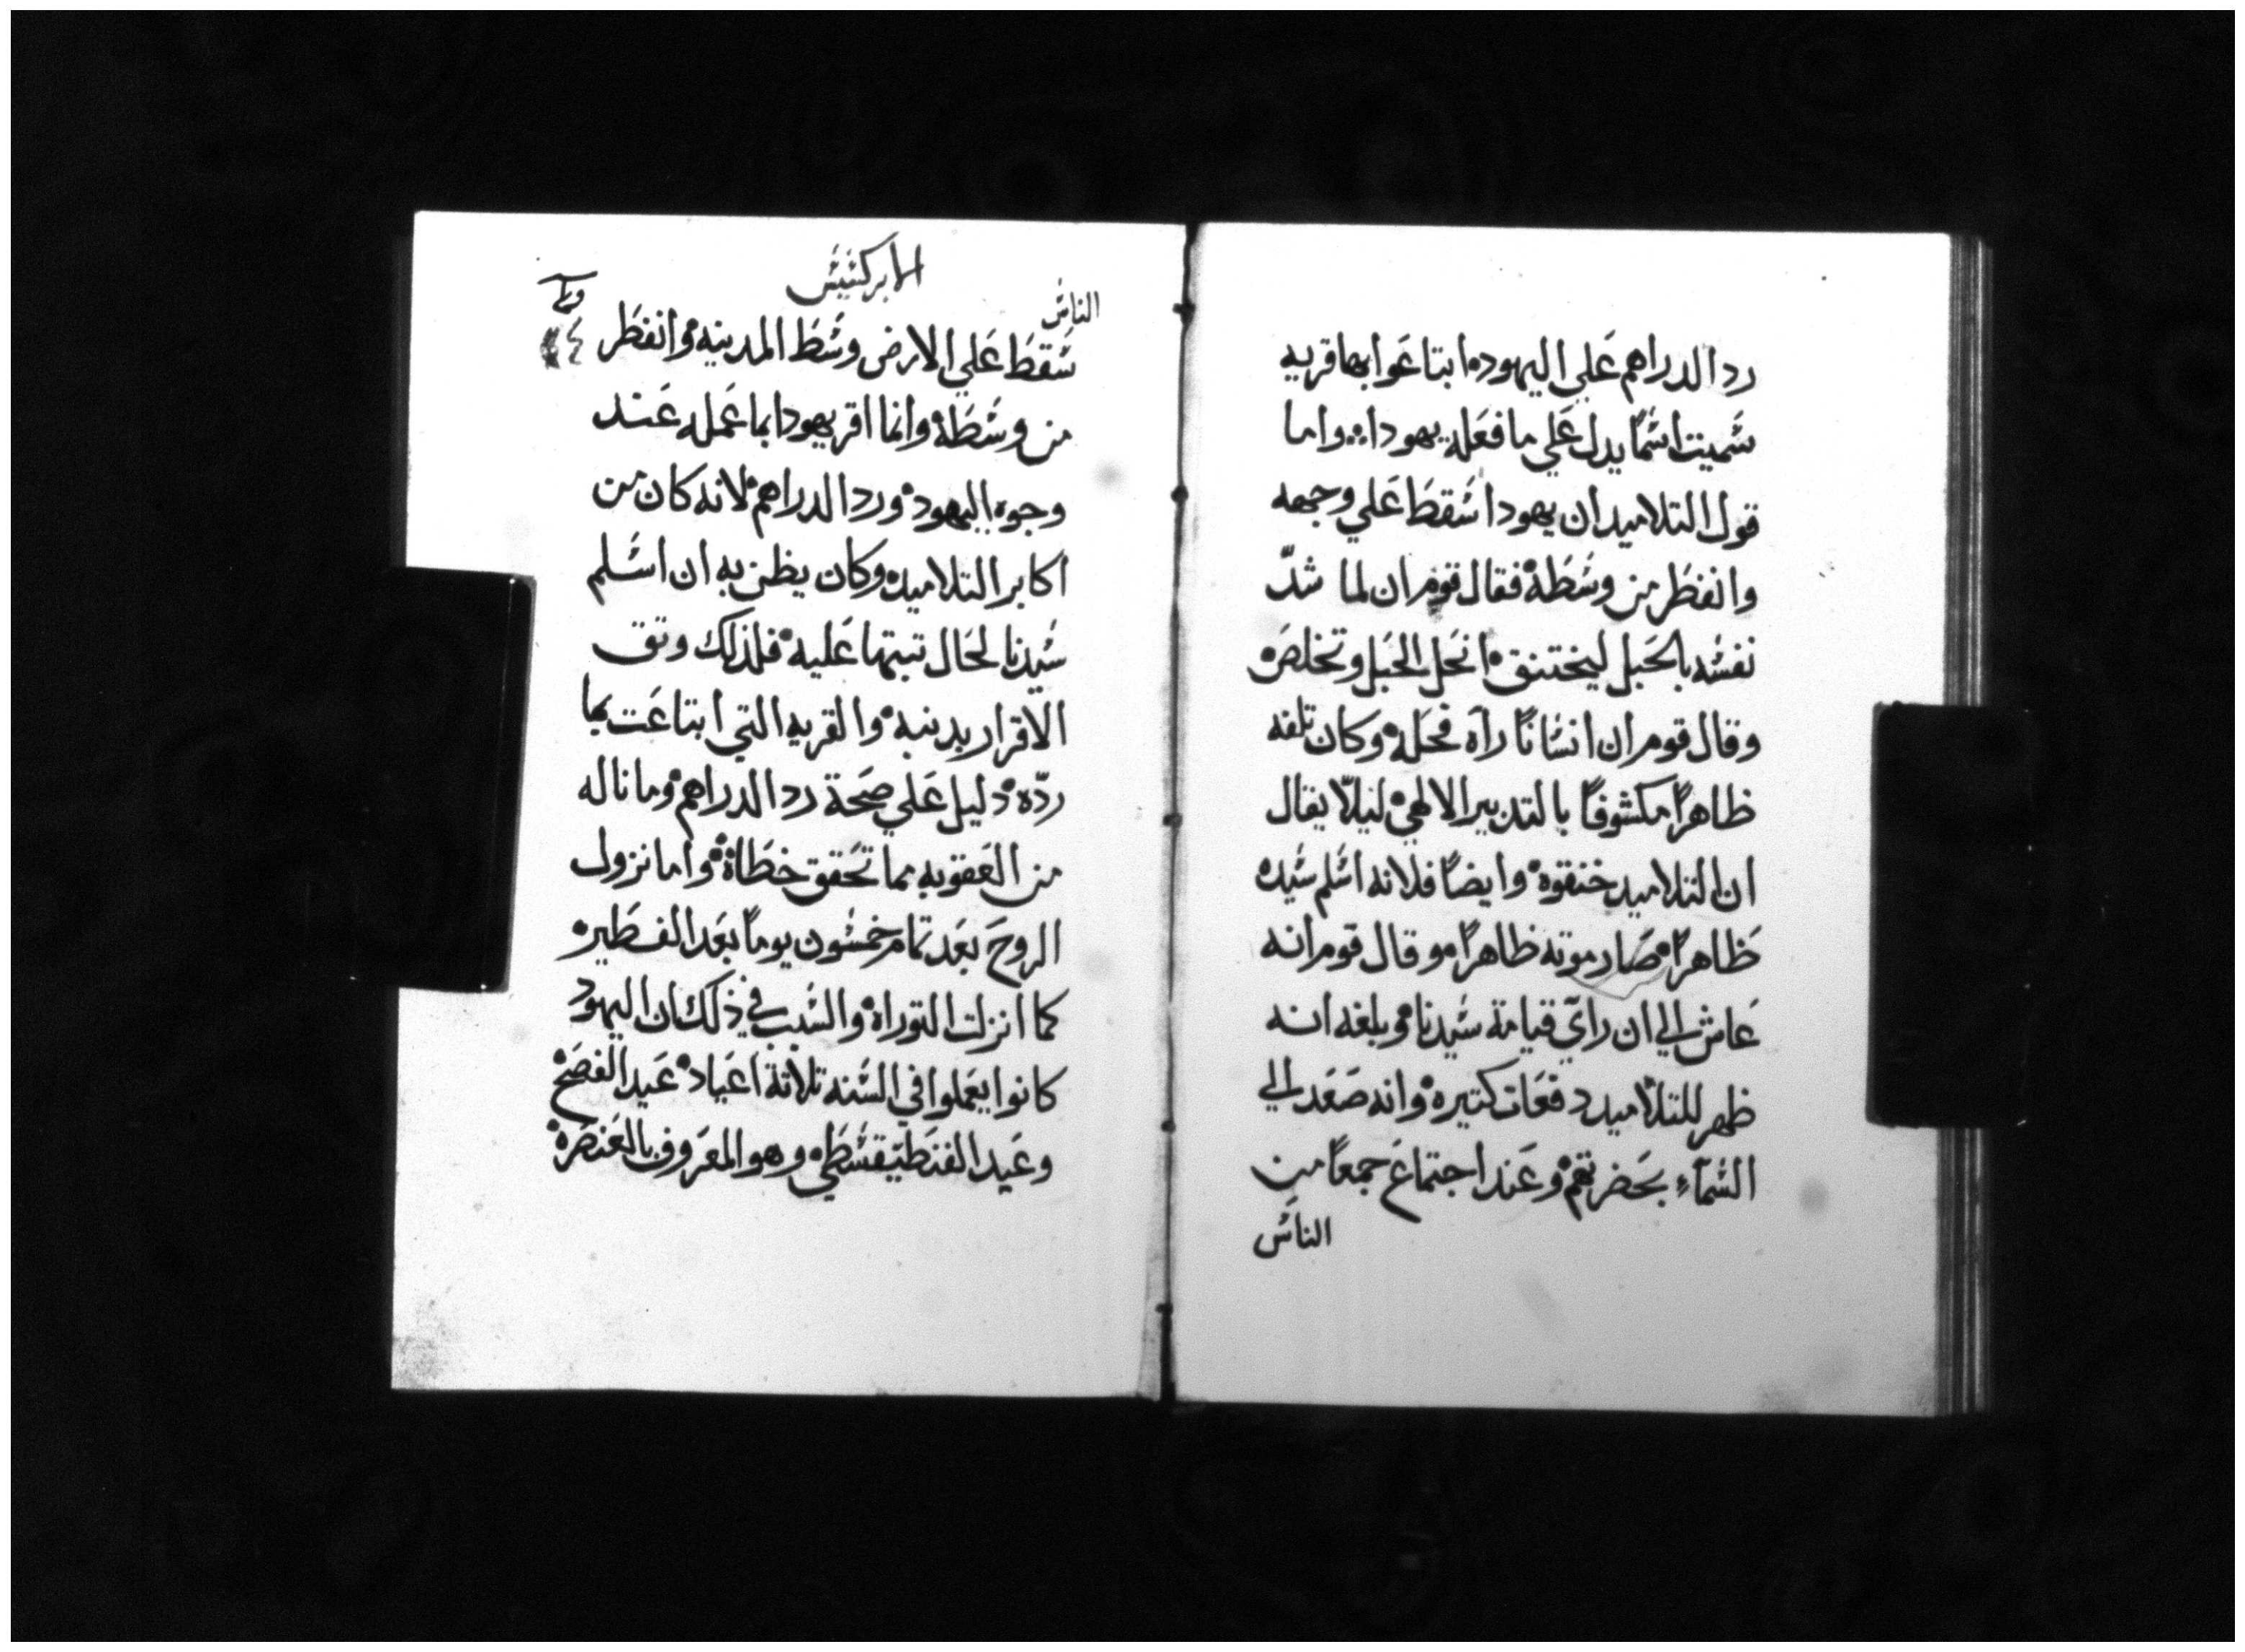 رد الدراهم علي اليهود ابتاعوا بها قريه
سميت اسماً يدل علي ما فعله يهودا واما
قول التلاميد ان يهودا سقط علي وجهه
وانفطر من وسطه فقال قوم ان لما شدّ
نفسه بالحبل ليختنق انحل الحبل وتخلص
وقال قوم ان انساناً رآه فحله وكان تلفه
ظاهراً مكشوفاً بالتدبير الالهي ليلّا يقال
ان التلاميد خنقوه وايضاً فلانه اسلم سيده
ظاهراً صار موته ظاهراً وقال قوم انه
عاش الي ان رآي قيامة سيدنا وبلغه انه
ظهر للتلاميد دفعات كتيره وانه صعد الي
السمآءِ بحضرتهم وعند اجتماع جمعاً من
الناس
الابركسيس
الناس
سقط علي الارض وسط المدينه وانفطر
من وسطه وانما اقر يهودا بما عمله عند
وجوه اليهود ورد الدراهم لانه كان من
اكابر التلاميد وكان يظن به ان اسلم
سيدنا لحال تبتها عليه فلذلك وتق
الاقرار بدنبه والقريه التي ابتاعت بما
ردّه دليل علي صحة رد الدراهم وما ناله
من العقوبه مما تحقق خطاة واما نزول
الروح بعد تمام خمسون يوماً بعد الفطير
كما انزلت التوراة والسبب في ذلك ان اليهود
كانوا يعملوا في السنه تلاتة اعياد عيد الفصح
وعيد الفنطيقسطي وهو المعروف بالعنصره